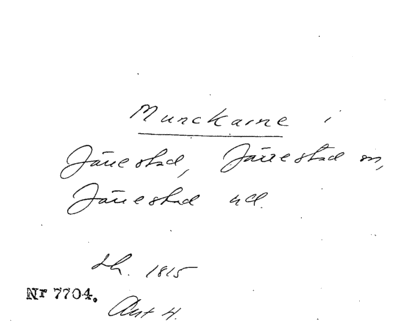 Munckarne i
Järrestad, Järrestad sn,
Järrestad hd.
sk. 1815
Nr 7704.
Ant 4.